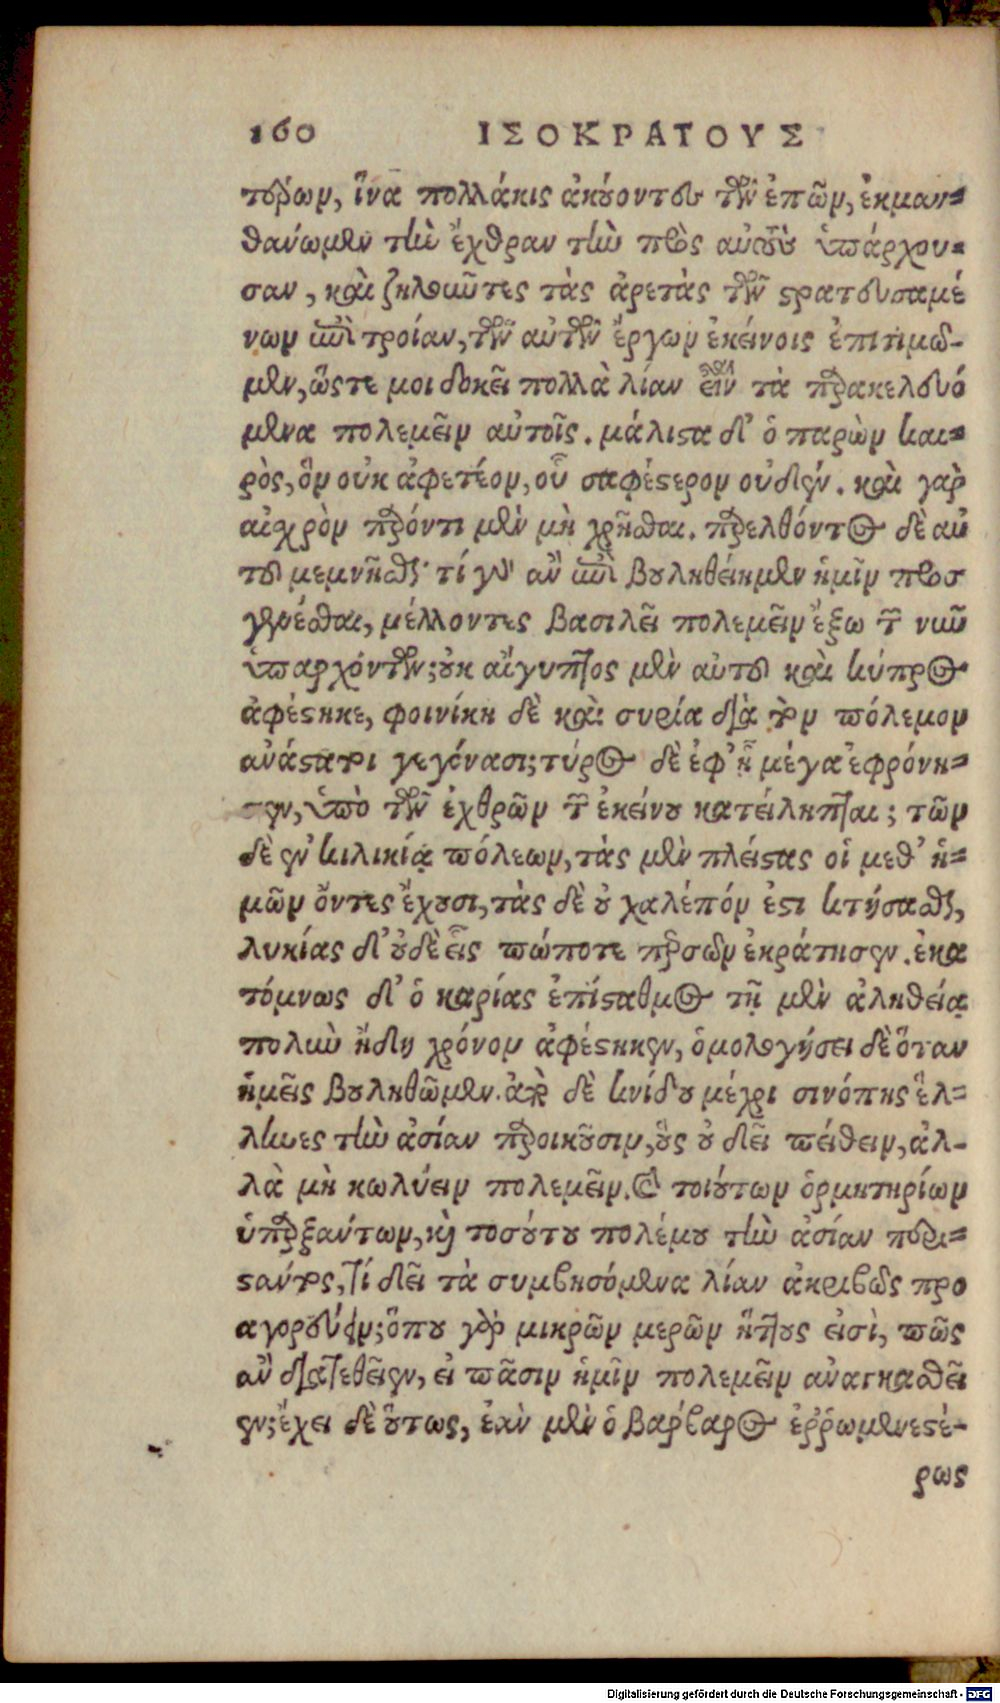 160 ΙΣΟΚΡΑΤΟΥΣ
τέρων, ἵνα πολλάκις ἀκούοντες τῶν ἐπῶν, ἐκμαν-
θανώμεν τὴν ἔχθραν τὴν πρὸς αὐτοὺς ὑπάρχου-
σαν, καὶ ζηλοῦντες τὰς ἀρετὰς τῶν στρατευσαμέ
νων ἐπὶ τροίαν, τῶν αὐτῶν ἔργων ἐκείνοις ἐπιτιμῶ-
μεν, ὥστε μοι δοκεῖ πολλὰ λίαν εἶναι τὰ παρακελευό
μενα πολεμεῖν αὐτοῖς. μάλιστα δ' ὁ παρὼν και-
ρὸς, ὃν οὐκ ἀφετέον, οὗ σαφέστερον οὐδέν. καὶ γὰρ
αἰσχρὸν παρόντι μὲν μὴ χρῆσθαι. παρελθόντος δὲ αὐ
τοῦ μεμνῆσθαι· τί γὰρ ἂν ἐπὶ βουληθείημεν ἡμῖν προσ
γενέσθαι, μέλλοντες βασιλεῖ πολεμεῖν ἔξω τῶν νῦν
ὑπαρχόντων; οὐκ αἴγυπτος μὲν αὐτοῦ καὶ κύπρος
ἀφέστηκε, φοινίκη δὲ καὶ συρία διὰ τὸν πόλεμον
ἀνάστατοι γεγόνασι; τύρος δὲ ἐφ' ᾗ μέγα ἐφρόνη-
σεν, ὑπὸ τῶν ἐχθρῶν τῶν ἐκείνου κατείληπται; τῶν
δὲ ἐν κιλικίᾳ πόλεων, τὰς μὲν πλείστας οἱ μεθ' ἡ-
μῶν ὄντες ἔχουσι, τὰς δὲ οὐ χαλέπόν ἐστι κτήσασθαι,
λυκίας δ' οὐδὲ εἷς πώποτε περσῶν ἐκράτησεν. ἑκα
τόμνως δ' ὁ καρίας ἐπίσταθμος τῇ μὲν ἀληθείᾳ
πολὺν ἤδη χρόνον ἀφέστηκεν, ὁμολογήσει δὲ ὅταν
ἡμεῖς βουληθῶμεν. ἀπὸ δὲ κνίδου μέχρι σινόπης ἕλ-
ληνες τὴν ἀσίαν παροικοῦσιν, οὓς οὐ δεῖ πείθειν, ἀλ-
λὰ μὴ κωλύειν πολεμεῖν. καὶ τοιούτων ὁρμητηρίων
ὑπαρξάντων, καὶ τοσούτου πολέμου τὴν ἀσίαν περι-
στάντος, τί δεῖ τὰ συμβησόμενα λίαν ἀκριβῶς προ
αγορεύειν; ὅπου γὰρ μικρῶν μερῶν ἥττους εἰσὶ, πῶς
ἂν διατεθεῖεν, εἰ πᾶσιν ἡμῖν πολεμεῖν ἀναγκασθεῖ
εν; ἔχει δὲ οὕτως, ἐὰν μὲν ὁ βάρβαρος ἐῤῥωμενεστέ-
ρως
Digitalisierung gefördert durch die Deutsche Forschungsgemeinschaft - DFG